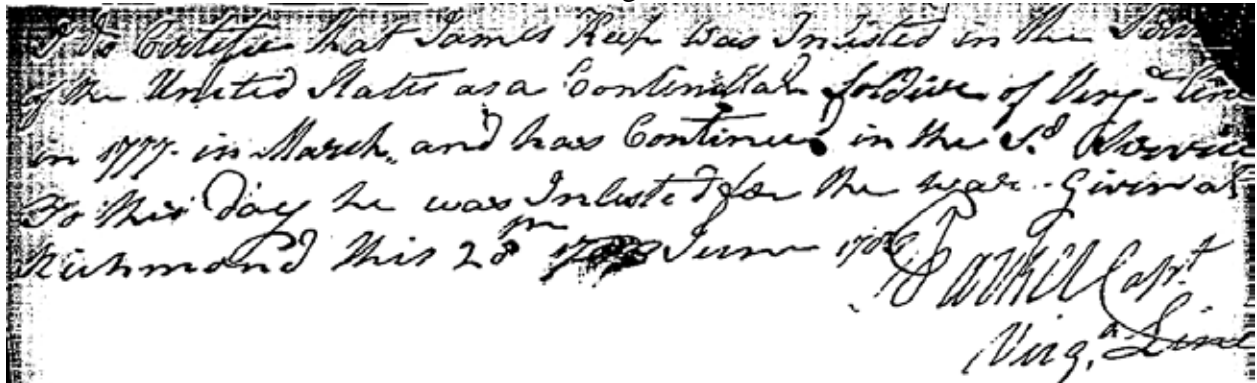 I do Certifie that James Keep was Inlisted in the Serv
of the United States as a Continental Soldier of Virgᵃ Line
in 1777. in March, and has Continued in the Sᵈ Service
To this Day he was Inlisted for the war. Given at
Richmond this 28ᵗʰ June 178
Capᵗ
Virgᵃ Line